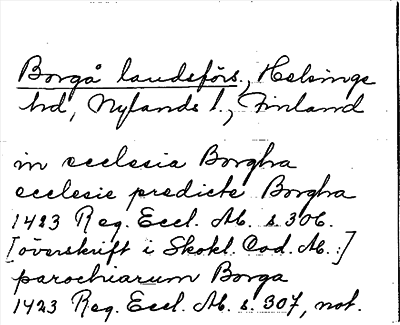 Borgå landsförs., Helsinge
hd, Nylands l., Finland
in ecclesia Borgha
ecclesie predicte Borgha
1423 Reg. Eccl. Ab. s. 306.
[överskrift i Skokl. Cod. Ab.:]
parochiarum Borga
1423 Reg. Eccl. Ab. s. 307, not.